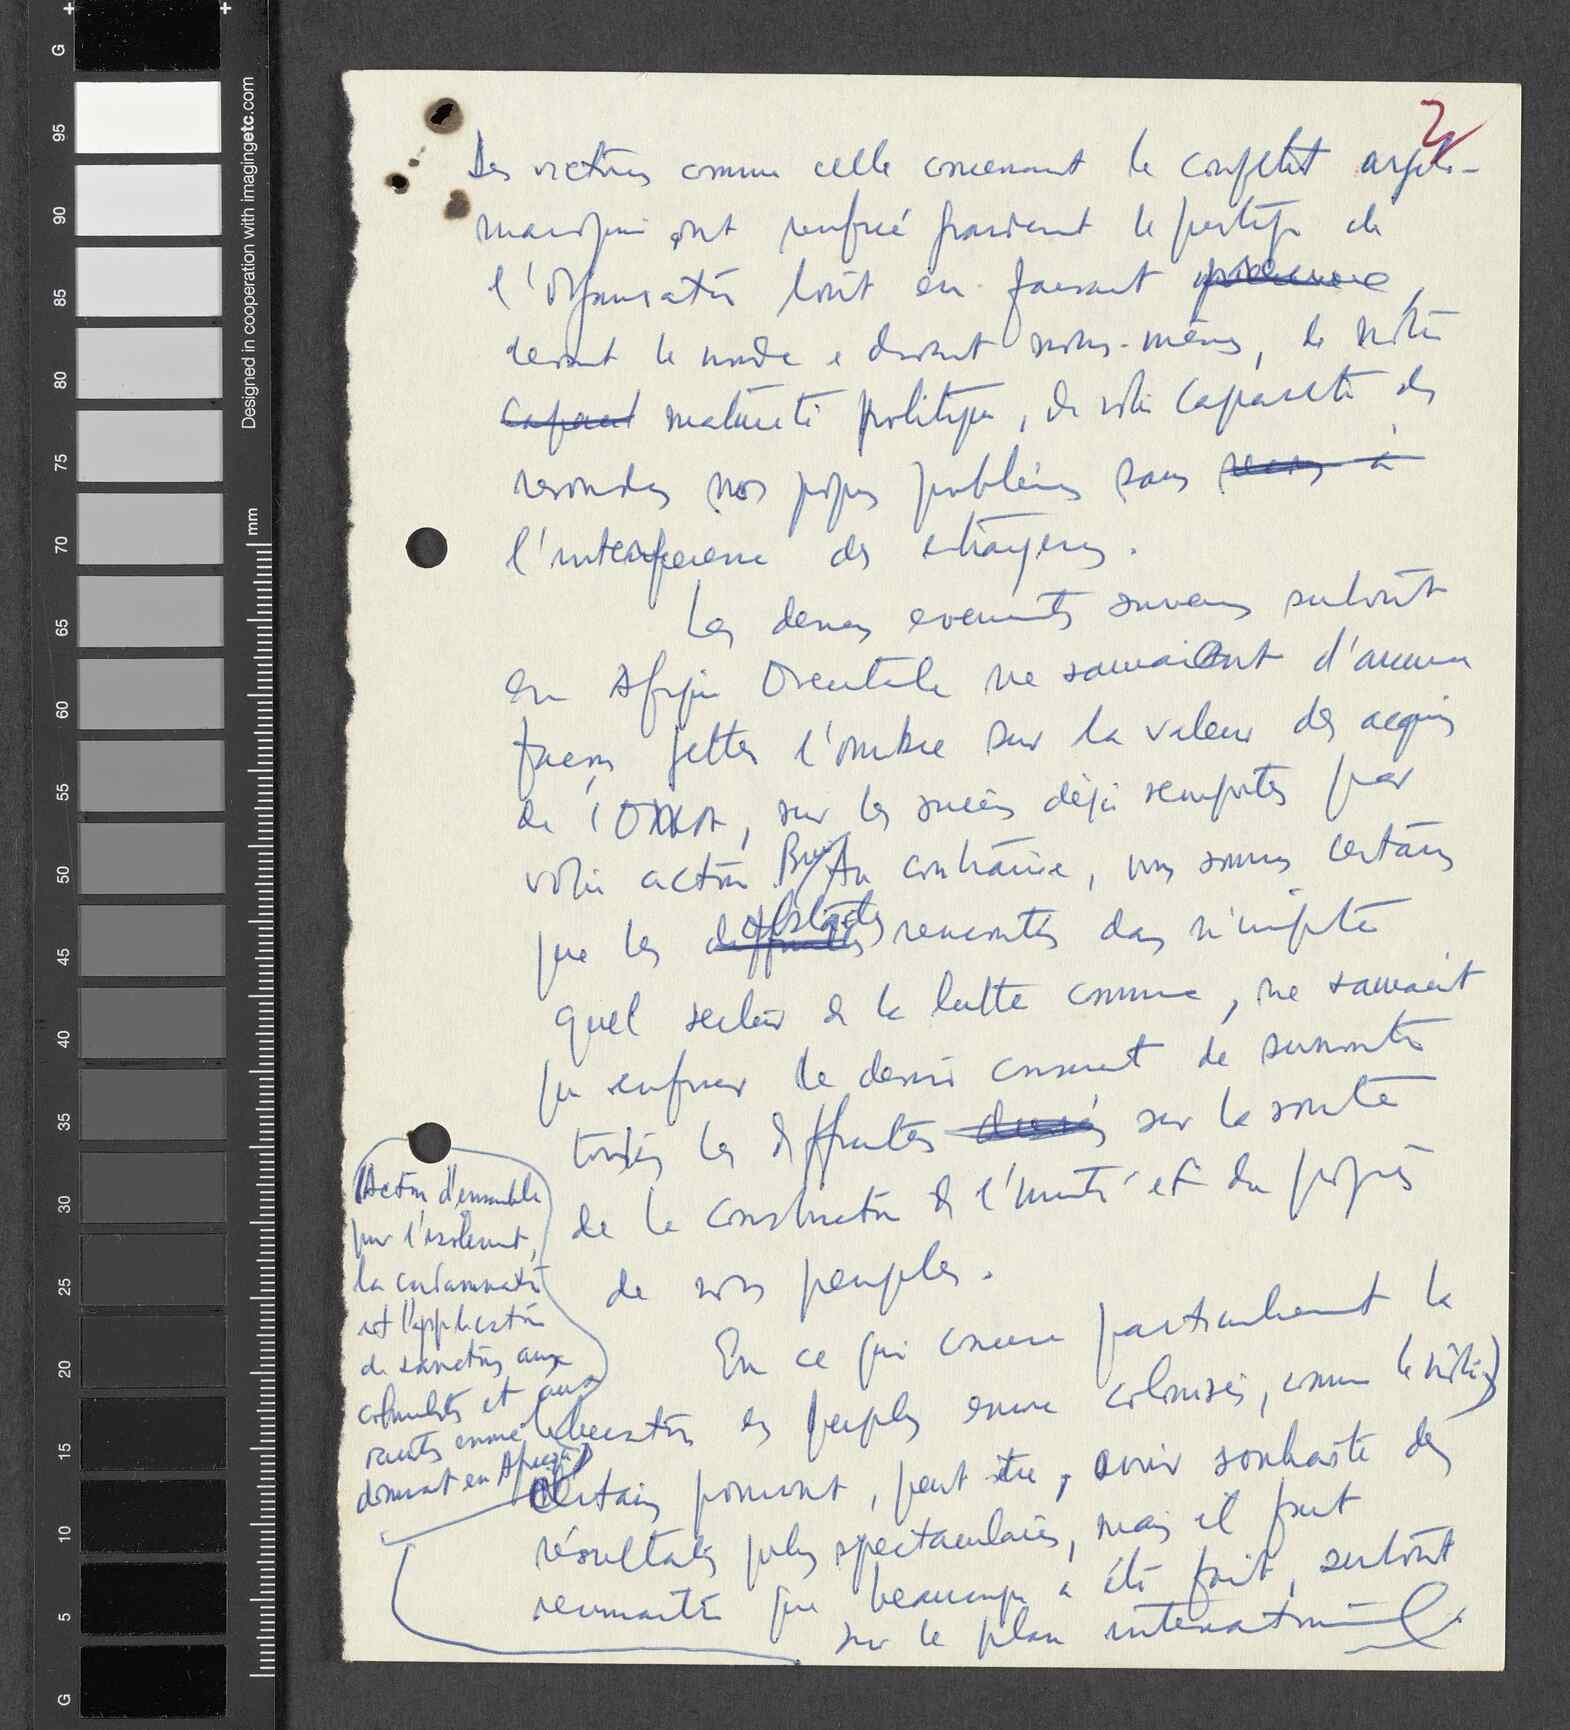 2
Des victoires comme celle concernant le conflit argelo-
marocain ont renforcé grandement le prestige de
l'Organisation tout en faisant preuve,
devant le monde e devant nous-mêmes, de notre
capaci maturité politique, de notre capacité de
resoudre nos propres problèmes sans
l'interference des etrangers.
Les derniers evenements survenus surtout
en Afrique Orientale ne sauraient d'aucune
façon jetter l'ombre sur la valeur des acquis
de l'OUA, sur les succès déjà remportés par
votre action. Au contraire, nous sommes certains
que les obstacles rencontrés dans n'importe
quel secteur de la lutte commune, ne sauraient
que renforcer le desir commun de surmonter
toutes les difficultés sur la route
de la construction de l'unité et du progrès
de nos peuples.
En ce qui concerne particulierement la
liberation des peuples encore colonisés, comme le nôtre)
certains pourront, peut être, avoir souhaité des
résultats plus spectaculaires, mais il faut
reconnaitre que beaucoup a été fait, surtout
sur le plan international.
Action d'ensemble
pour l'isolement,
la condamnation
et l'application
de sanctions aux
colonialistes et aux
racistes encore
dominant en Afrique